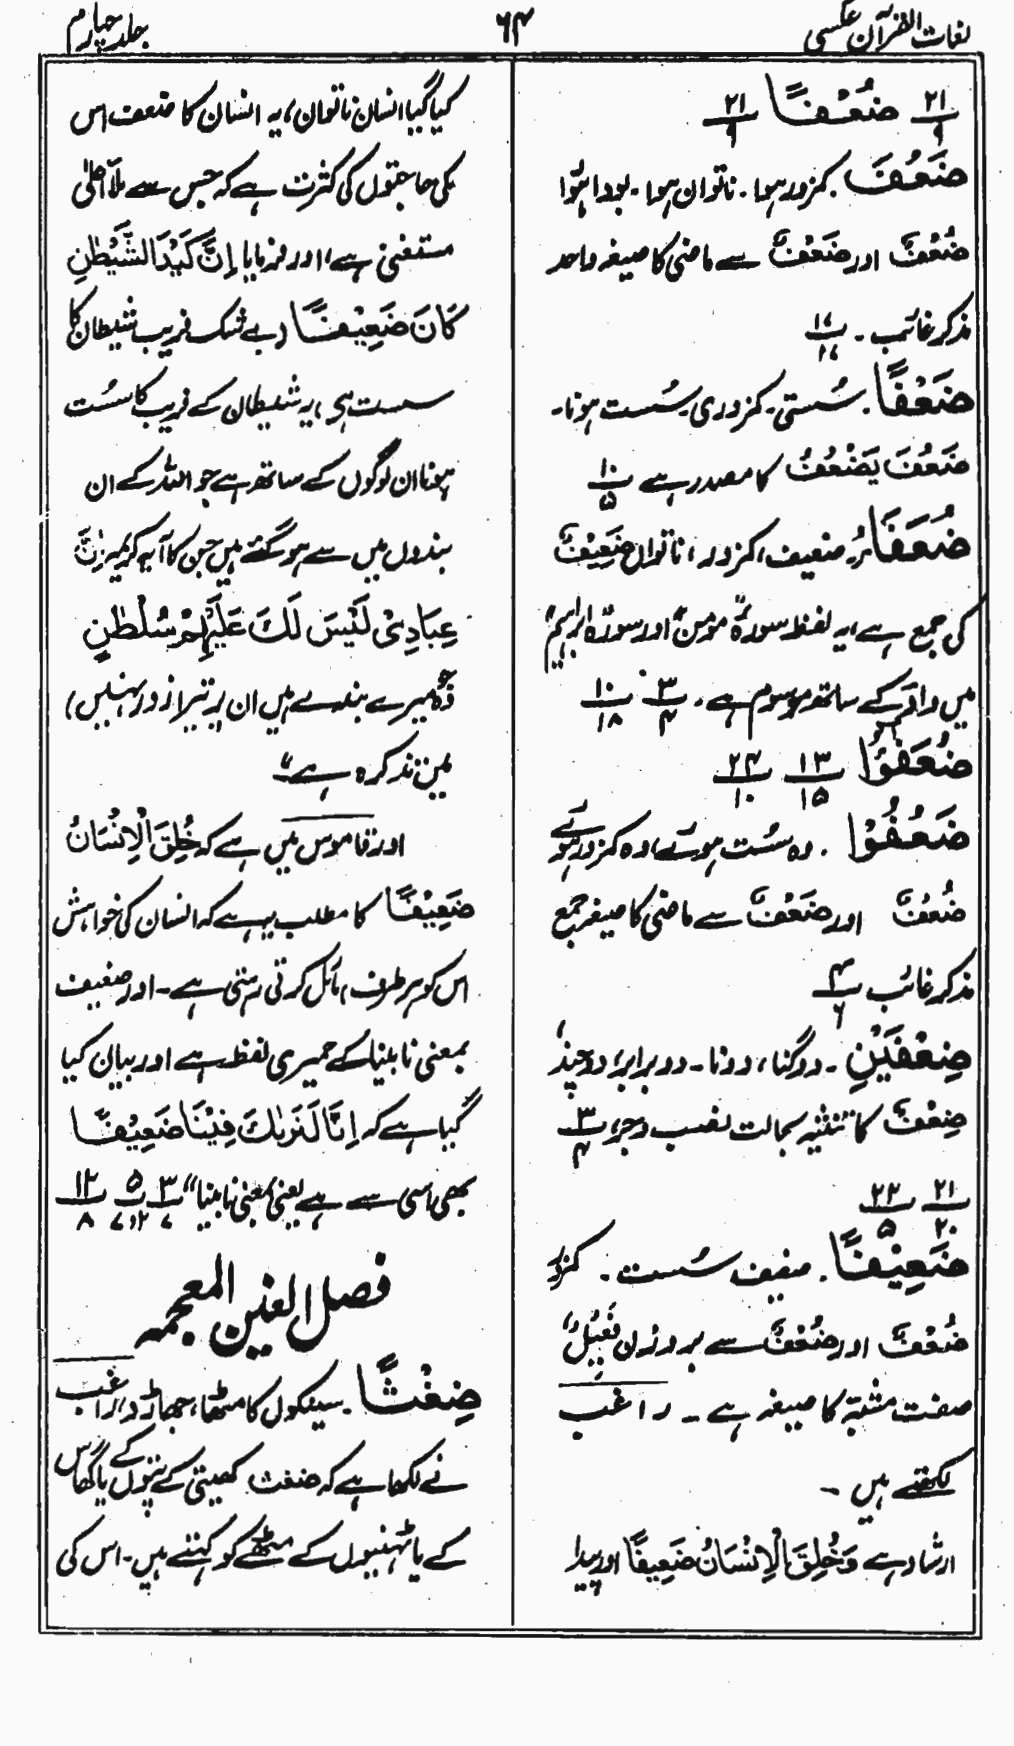 لغات القرآن عکسی
۶۴
جلد چہارم
۲۱/۹ ضُعْفًا ۲۱/۹
ضَعُفَ کمزور ہوا۔ ناتوان ہوا۔ بودا ہوا
ضُعْفٌ اور ضَعْفٌ سے ماضی کا صیغہ واحد
مذکر غائب۔ ۱۷/۱۷
ضَعْفًا۔ سُستی۔ کمزوری۔ سُست ہونا۔
ضَعُفَ یَضْعُفُ کا مصدر ہے ۱۰/۵
ضُعَفَاءُ ضعیف، کمزور، ناتواں ضَعِیْفٌ
کی جمع ہے، یہ لفظ سورۂ مؤمن اور سورۂ ابراہیم
میں واؤ کے ساتھ مرسوم ہے۔ ۳/۴ ۱۰/۱۸
ضُعَفٰؤُا ۱۳/۱۵ ۲۴/۱۰
ضَعُفُوْا۔ وہ سُست ہوئے، وہ کمزور ہوئے
ضُعْفٌ اور ضَعْفٌ سے ماضی کا صیغہ جمع
مذکر غائب ۴/۶
ضِعْفَیْنِ۔ دوگنا، دونا۔ دو برابر، دوچند،
ضِعْفٌ کا تثنیہ بحالت نصب وجر، ۳/۴
۲۱/۲۰ ۲۲/۵
ضَعِیْفًا۔ ضعیف سُست۔ کمزور
ضُعْفٌ اور ضَعْفٌ سے بروزن فَعِیْلٌ
صفت مشبہ کا صیغہ ہے۔ راغب
لکھتے ہیں۔
ارشاد ہے وَخُلِقَ الْاِنْسَانُ ضَعِیفًا اور پیدا
کیا گیا انسان ناتوان، یہ انسان کا ضعف اس
کی حاجتوں کی کثرت ہے کہ جس سے ملأ اعلیٰ
مستغنی ہے، اور فرمایا اِنَّ کَیْدَ الشَّیْطٰنِ
کَانَ ضَعِیْفًا (بے شک فریب شیطان کا
سست ہی، یہ شیطان کے فریب کا سُست
ہونا ان لوگوں کے ساتھ ہے جو اللہ کے ان
بندوں میں سے ہو گئے ہیں جن کا آیہ کریمہ اِنَّ
عِبَادِیْ لَیْسَ لَکَ عَلَیْہِمْ سُلْطٰنٍ
(جو میرے بندے ہیں ان پر تیرا زور نہیں)
میں تذکرہ ہے“
اور قاموس میں ہے کہ خُلِقَ الْاِنْسَانُ
ضَعِیْفًا کا مطلب یہ ہے کہ انسان کی خواہش
اس کو ہر طرف مائل کرتی رہتی ہے۔ اور ضعیف
بمعنی نابینا کے حمیری لفظ ہے اور بیان کیا
گیا ہے کہ اِنَّا لَنَرٰىکَ فِیْنَا ضَعِیْفًا
بھی اسی سے ہے یعنی بمعنی نابینا“ ۳/۷ ۵/۷،۲ ۱۲/۸
فصل الغین المعجمہ
ضِغْثًا۔ سینکوں کا مٹھا، جھاڑو، راغب
نے لکھا ہے کہ ضغث کھیتی کے پتوں یا گھاس کے
کے یا ٹہنیوں کے مٹھے کو کہتے ہیں۔ اس کی